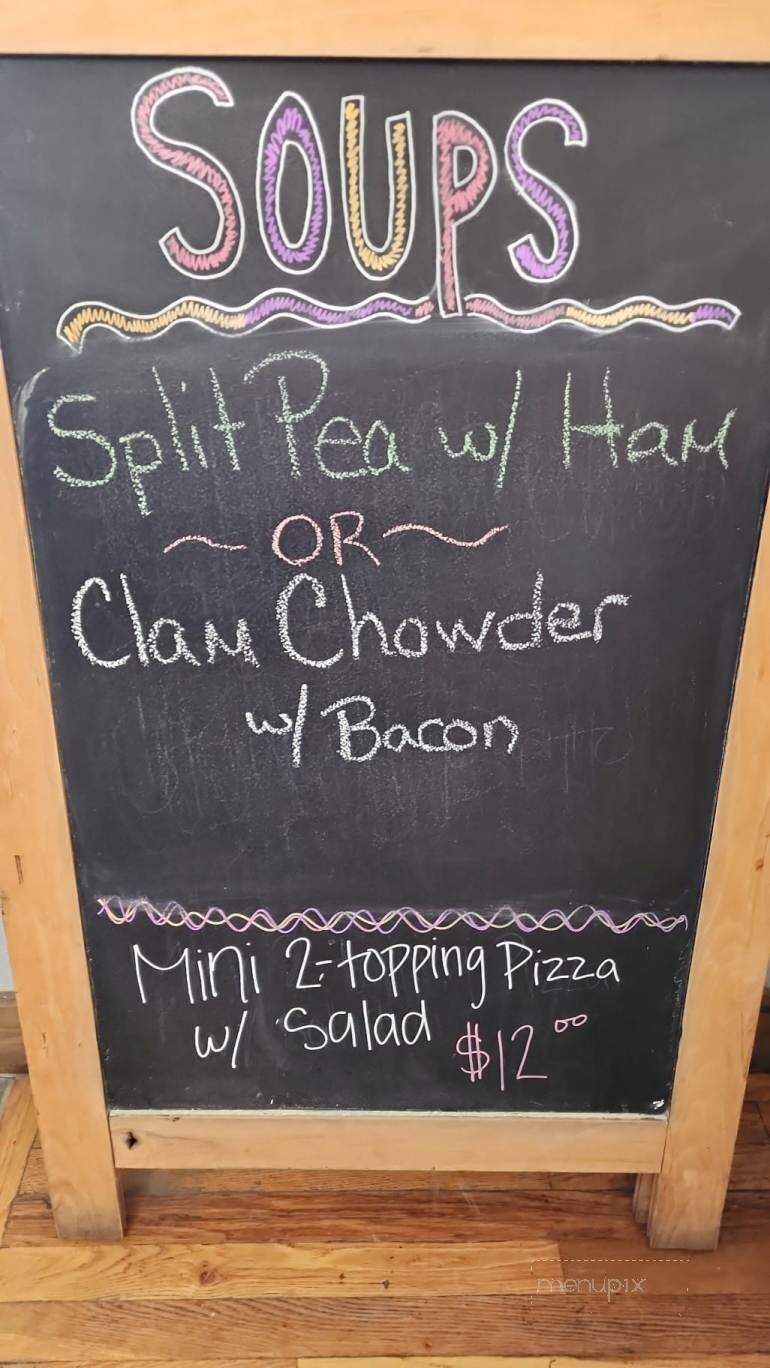 SOUPS
Split Pea w/ Ham
~ OR ~
Clam Chowder
w/ Bacon
Mini 2-topping Pizza
w/ Salad $12.00
menupix